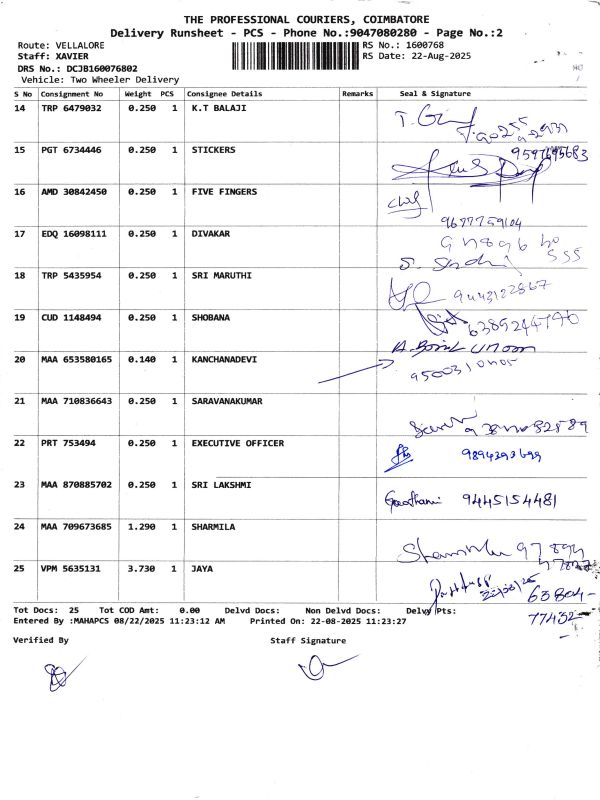 THE PROFESSIONAL COURIERS, COIMBATORE
Delivery Runsheet - PCS - Phone No.:9047080280 - Page No.:2
Route: VELLALORE RS No.: 1600768
Staff: XAVIER RS Date: 22-Aug-2025
DRS No.: DCJB160076802
Vehicle: Two Wheeler Delivery
S No Consignment No Weight PCS Consignee Details Remarks Seal & Signature
14 TRP 6479032 0.250 1 K.T BALAJI
15 PGT 6734446 0.250 1 STICKERS
16 AMD 30842450 0.250 1 FIVE FINGERS
9677759104
17 EDQ 16098111 0.250 1 DIVAKAR
18 TRP 5435954 0.250 1 SRI MARUTHI
9443122867
19 CUD 1148494 0.250 1 SHOBANA
6385244790
20 MAA 653580165 0.140 1 KANCHANADEVI
21 MAA 710836643 0.250 1 SARAVANAKUMAR
22 PRT 753494 0.250 1 EXECUTIVE OFFICER
23 MAA 870885702 0.250 1 SRI LAKSHMI
9445154481
24 MAA 709673685 1.290 1 SHARMILA
25 VPM 5635131 3.730 1 JAYA
22/08/25 63804-
77432-
Tot Docs: 25 Tot COD Amt: 0.00 Delvd Docs: Non Delvd Docs: Delvy Pts:
Entered By :MAHAPCS 08/22/2025 11:23:12 AM Printed On: 22-08-2025 11:23:27
Verified By Staff Signature